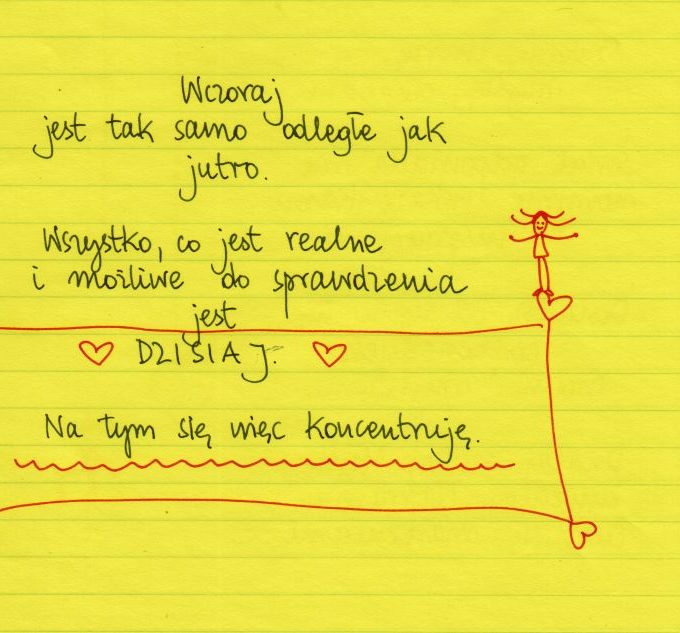 Wczoraj
jest tak samo odległe jak
jutro.
Wszystko, co jest realne
i możliwe do sprawdzenia
jest
DZISIAJ.
Na tym się więc koncentruję.